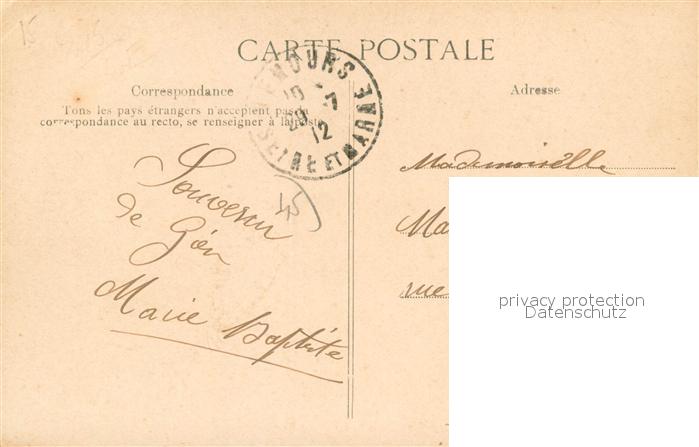 CARTE POSTALE
Correspondance
Tons les pays étrangers n'acceptent pas de
correspondance au recto, se renseigner à la poste
Adresse
NEMOURS
SEINE ET MARNE
12
45
15
Souvenir
de
Marie Baptiste
Mademoiselle
Ma
rue
privacy protection
Datenschutz